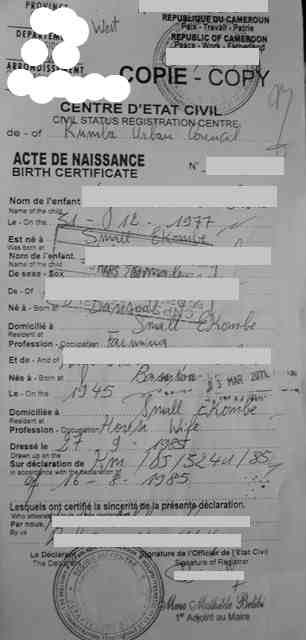 PROVINCE
West
DEPARTEMENT
ARRONDISSEMENT
REPUBLIQUE DU CAMEROUN
Paix - Travail - Patrie
REPUBLIC OF CAMEROON
Peace - Work - Fatherland
COPIE - COPY
CENTRE D'ETAT CIVIL
CIVIL STATUS REGISTRATION CENTRE
de - of Kumba Urban Council
ACTE DE NAISSANCE
BIRTH CERTIFICATE
N°
Nom de l'enfant
Name of the child
Le - On the 31 - 12 - 1977
Est né à Small Ekombe
Was born at
Nom de l'enfant
Name of the child
De sexe - Sex
De - Of
Né à - Born at
Domicilié à Small Ekombe
Resident at
Profession - Occupation Farming
Et de - And of
Née à - Born at
MAR
Le - On the 1945
Domiciliée à Small Ekombe
Resident at
Profession - Occupation House Wife
Dressé le 27 - 9 - 1985
Drawn up on the
Sur déclaration de Km /85/5244/85
In accordance with the declaration of
of 16 - 8 - 1985
Lesquels ont certifié la sincérité de la présente déclaration.
Who attested
Par nous,
By us
Le Déclarant
The Declarant
Signature de l'Officier de l'Etat Civil
Signature of Registrar
Mme Mathilde
1er Adjoint au Maire